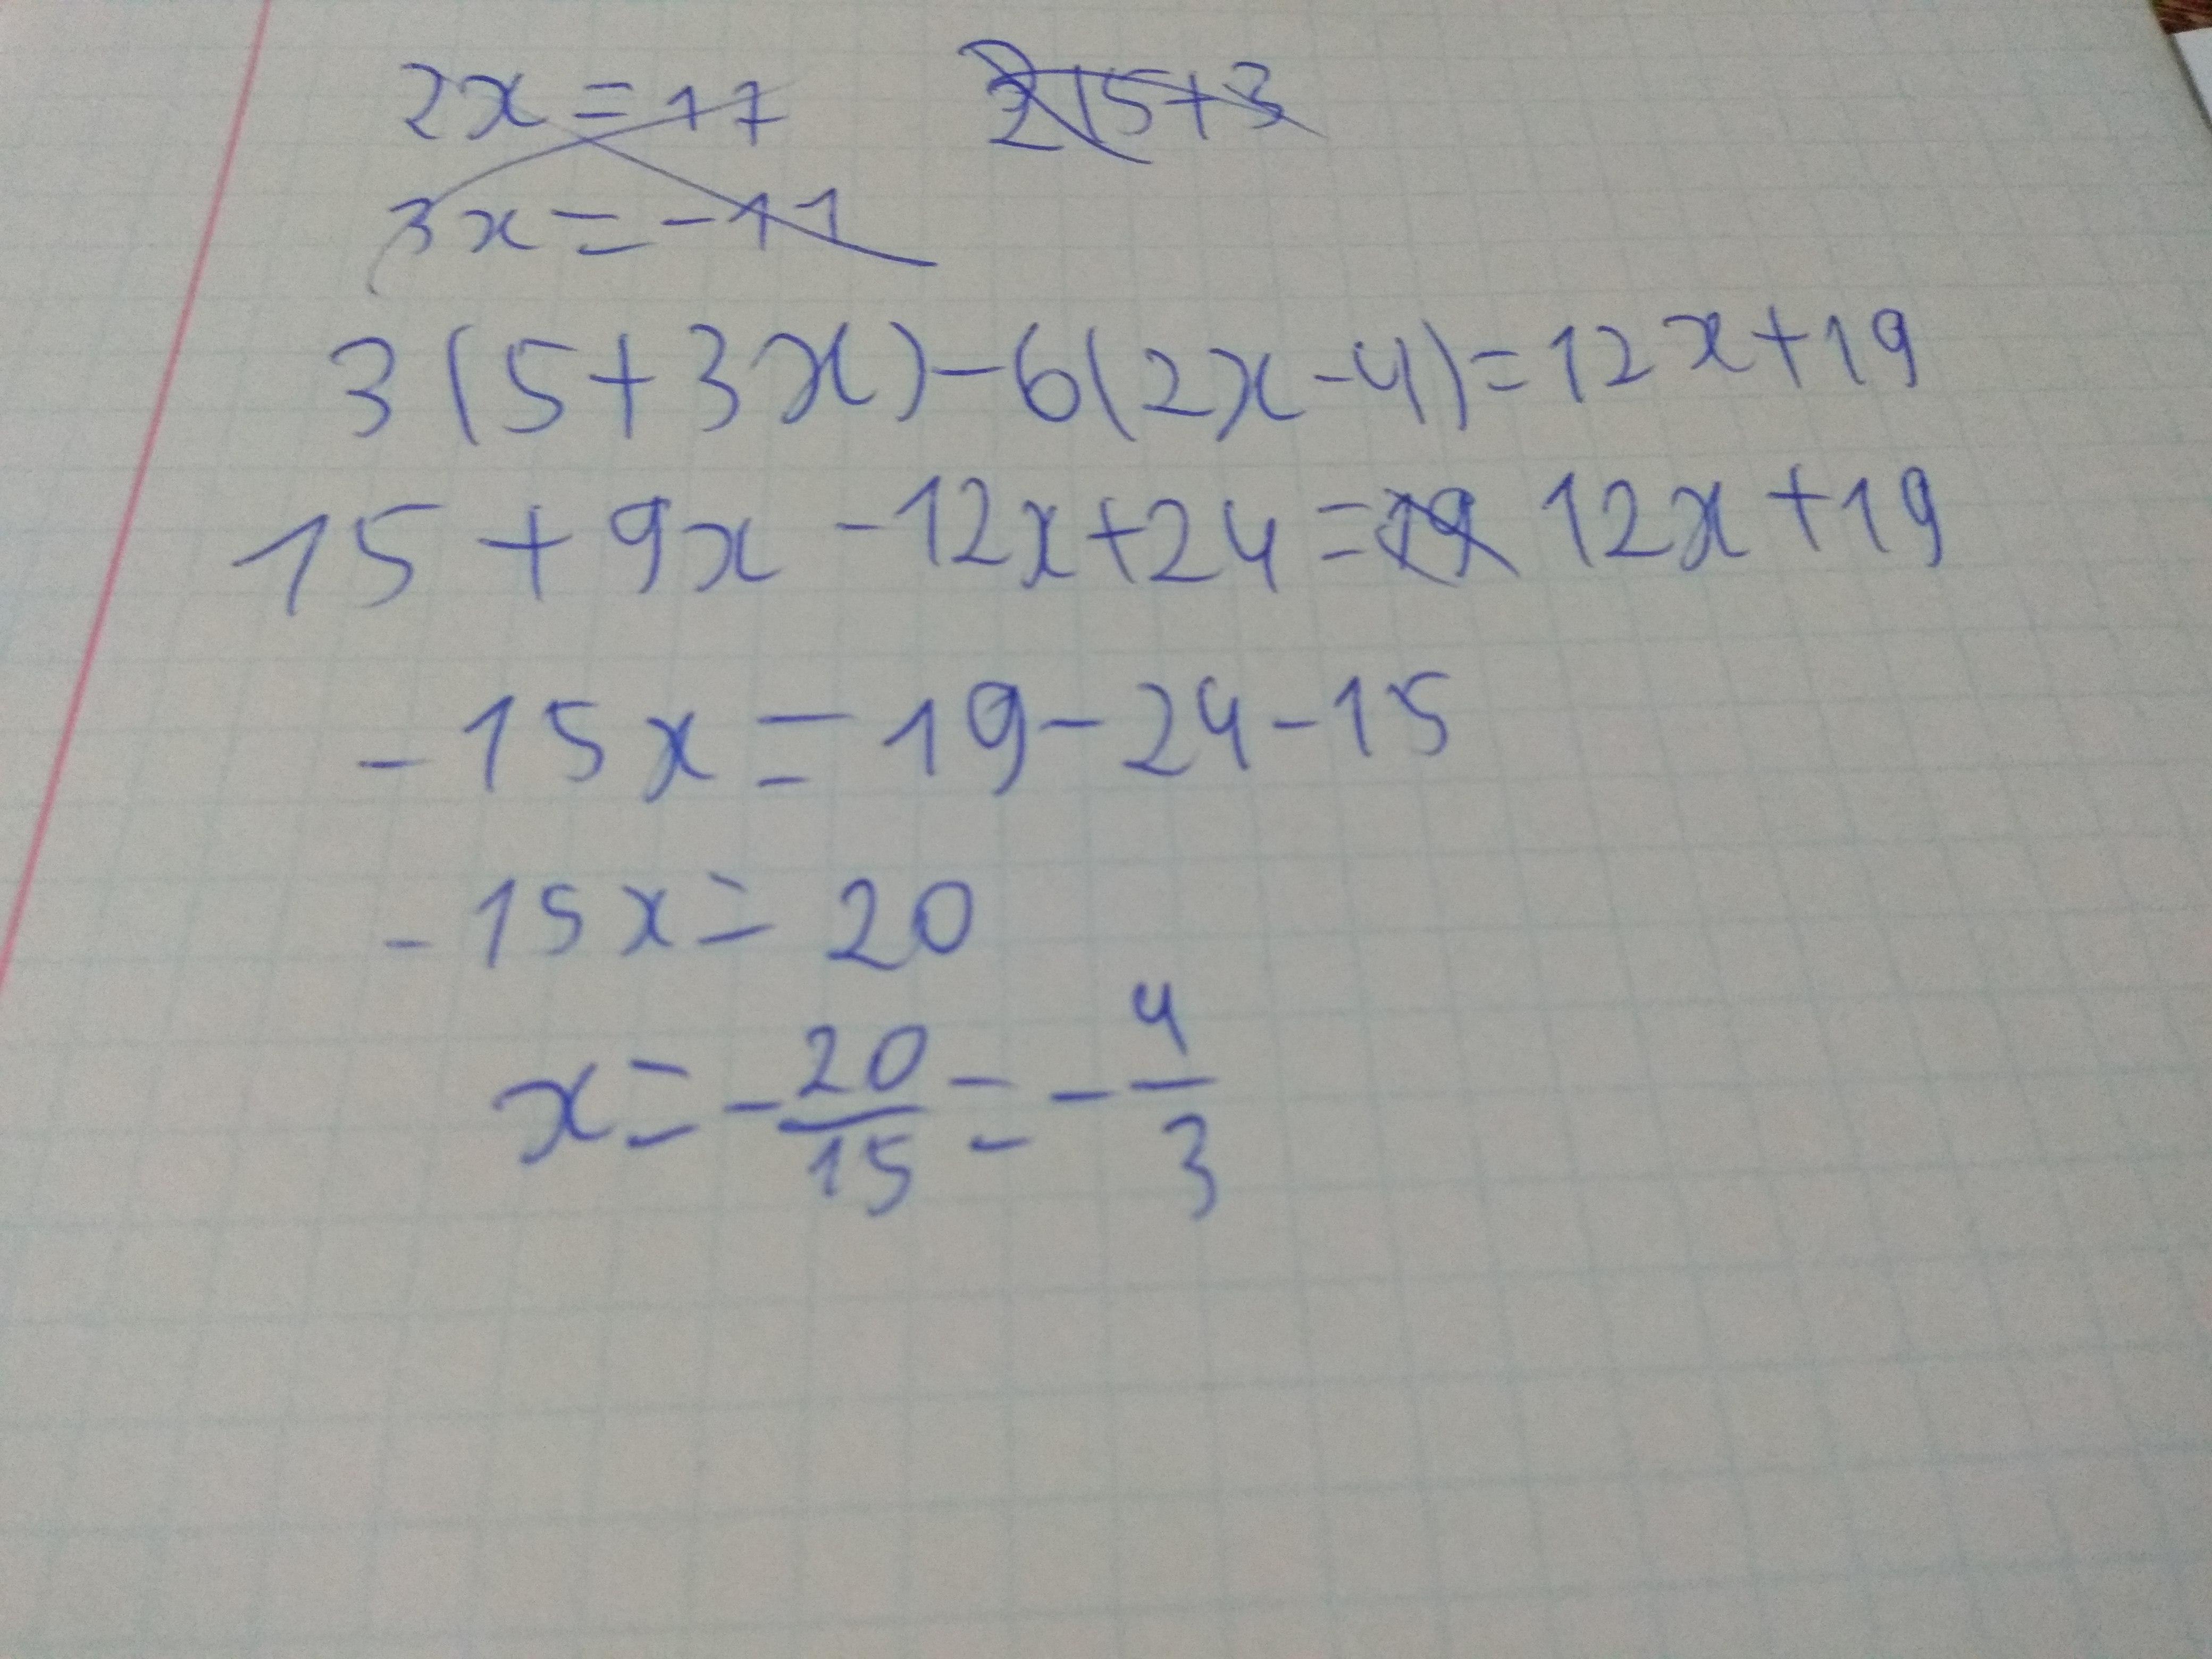 2x = 17 2(5+3
3x = -11
3(5+3x)-6(2x-4)=12x+19
15+9x-12x+24=19 12x+19
-15x=19-24-15
-15x=20
x=-20/15=-4/3